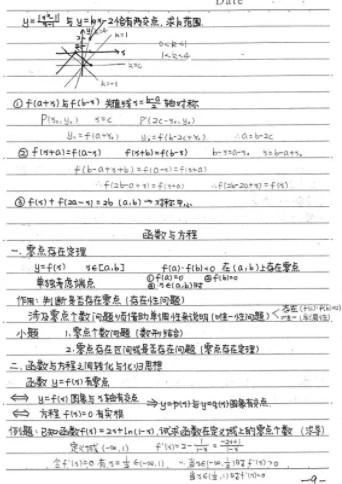 Date
y=|x²-1|/x-1 与 y=kx-2恰有两交点，求k范围.
k=1
0<k<1
1<k<4
k=-1
① f(a+x)与f(b-x) 关于直线x=b-a/2 轴对称
P(x₀,y₀) x=c P'(2c-x₀,y₀)
y₀=f(a+x₀) y₀=f(b-2c+x₀) ∴a=b-2c
② f(x+a)=f(a-x) f(x+b)=f(b-x) b-x=a-x₀ x=b-a+x₀
f(b-a+x+b)=f(a-x)=f(x+a)
∴f(2b-a+x)=f(x+a) ∴f(2b-2a+x)=f(x)
③ f(x)+f(2a-x)=2b (a,b)→对称中心
函数与方程
一. 零点存在定理
y=f(x) x∈[a,b] f(a)·f(b)<0 在(a,b)上存在零点
单独考虑端点 ①f(a)=0 ②f(b)=0
③x∈(a,b)时
作用：判断是否存在零点（存在性问题）
涉及零点个数问题必须借助单调性来说明（唯一性问题）
小题 1.零点个数问题（数形结合）
2.零点存在区间或是否存在问题（零点存在定理）
二. 函数与方程之间转化与化归思想
函数y=f(x)有零点
⟺ y=f(x)图象与x轴有交点 ⟹y=p(x)与y=q(x)图象有交点.
⟺ 方程f(x)=0有实根
例1题：已知函数f(x)=2x+ln(1-x)，试求函数在定义域上的零点个数（求导）
定义域(-∞,1) f'(x)=2-1/1-x=-2x+1/1-x
令f'(x)=0有x=1/2∈(-∞,1) ∴当x∈(-∞,1/2)时f'(x)>0
当x∈(1/2,1)时f'(x)<0
-9-